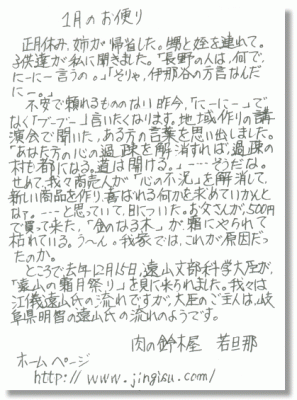 1月のお便り
正月休み、姉が帰省した。甥と姪を連れて。
子供達が私に聞きました。「長野の人は、何で、
にーにー言うの。」「そりゃ、伊那谷の方言なんだ
にー。」
不安で頼れるもののない昨今、「にーにー」で
なく「ブーブー」言いたくなります。地域作りの講
演会で聞いた、ある方の言葉を思い出しました。
「あなた方の心の過疎を解消すれば、過疎の
村も都になる。道は開ける。」---そうだな。
せめて、我々商売人が「心の不況」を解消して、
新しい商品を作り、喜ばれる何かを求めていかんと
なァ。---と思っていて、目についた。お父さんが、500円
で買って来た、「金のなる木」が霜にやられて
枯れている。う~ん。我家では、これが原因だっ
たのか。
ところで去年12月15日、遠山文部科学大臣が、
「遠山の霜月祭り」を見に来られました。我々は
江儀遠山氏の流れですが、大臣のご主人は、岐
阜県明智の遠山氏の流れのようです。
肉の鈴木屋 若旦那
ホームページ
http://www.jingisu.com/